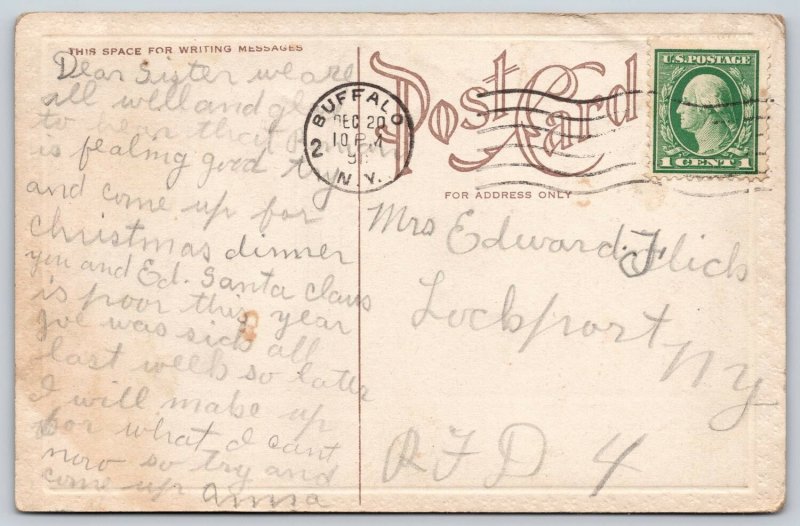 THIS SPACE FOR WRITING MESSAGES
Post Card
FOR ADDRESS ONLY
BUFFALO
DEC 20
10 P M
2
N.Y.
U.S. POSTAGE
1 CENT 1
Dear Sister we are
all well and glad
to hear that
is fealing good try
and come up for
christmas dinner
you and Ed. Santa claus
is poor this year
Joe was sick all
last week so later
I will make up
for what I cant
now so try and
come up Anna
Mrs Edward Flick
Lockport
NY
RFD 4